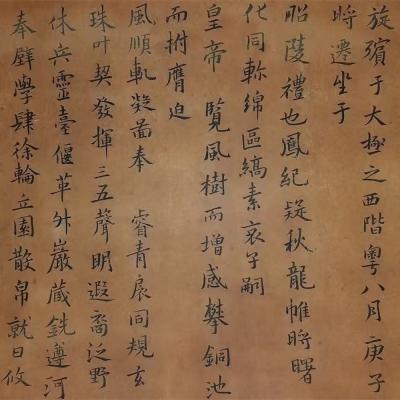 旋殯于大極之西階粤八月庚子
將遷坐于
昭陵禮也鳳紀疑秋龍帷將曙
化同軫綿區縞素哀子嗣
皇帝 覽風樹而增感攀銅池
而拊膺迫
風順軌凝圖奉 睿青扆同規玄
珠叶契發揮三五聲明遐裔泛野
休兵靈臺偃革外巖蔵銑遵河
奉璧學肆徐輪立園散帛就日攸